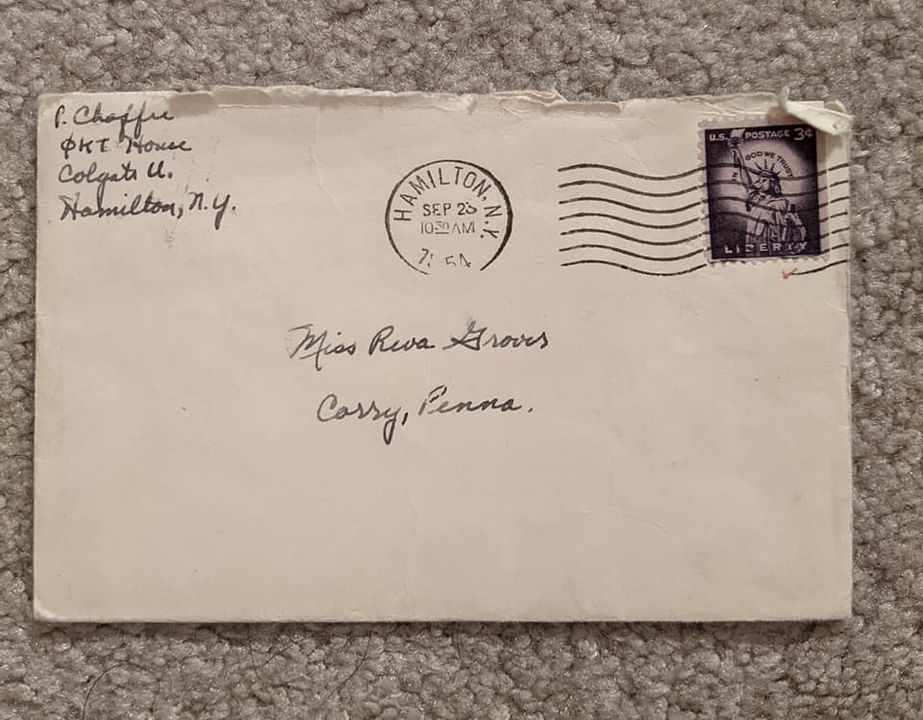 P. Chaffee
ΦKT House
Colgate U.
Hamilton, N.Y.
HAMILTON, N.Y.
SEP 23
10 30 AM
54
U.S. POSTAGE 3¢
IN GOD WE TRUST
LIBERTY
Miss Reva Groves
Corry, Penna.